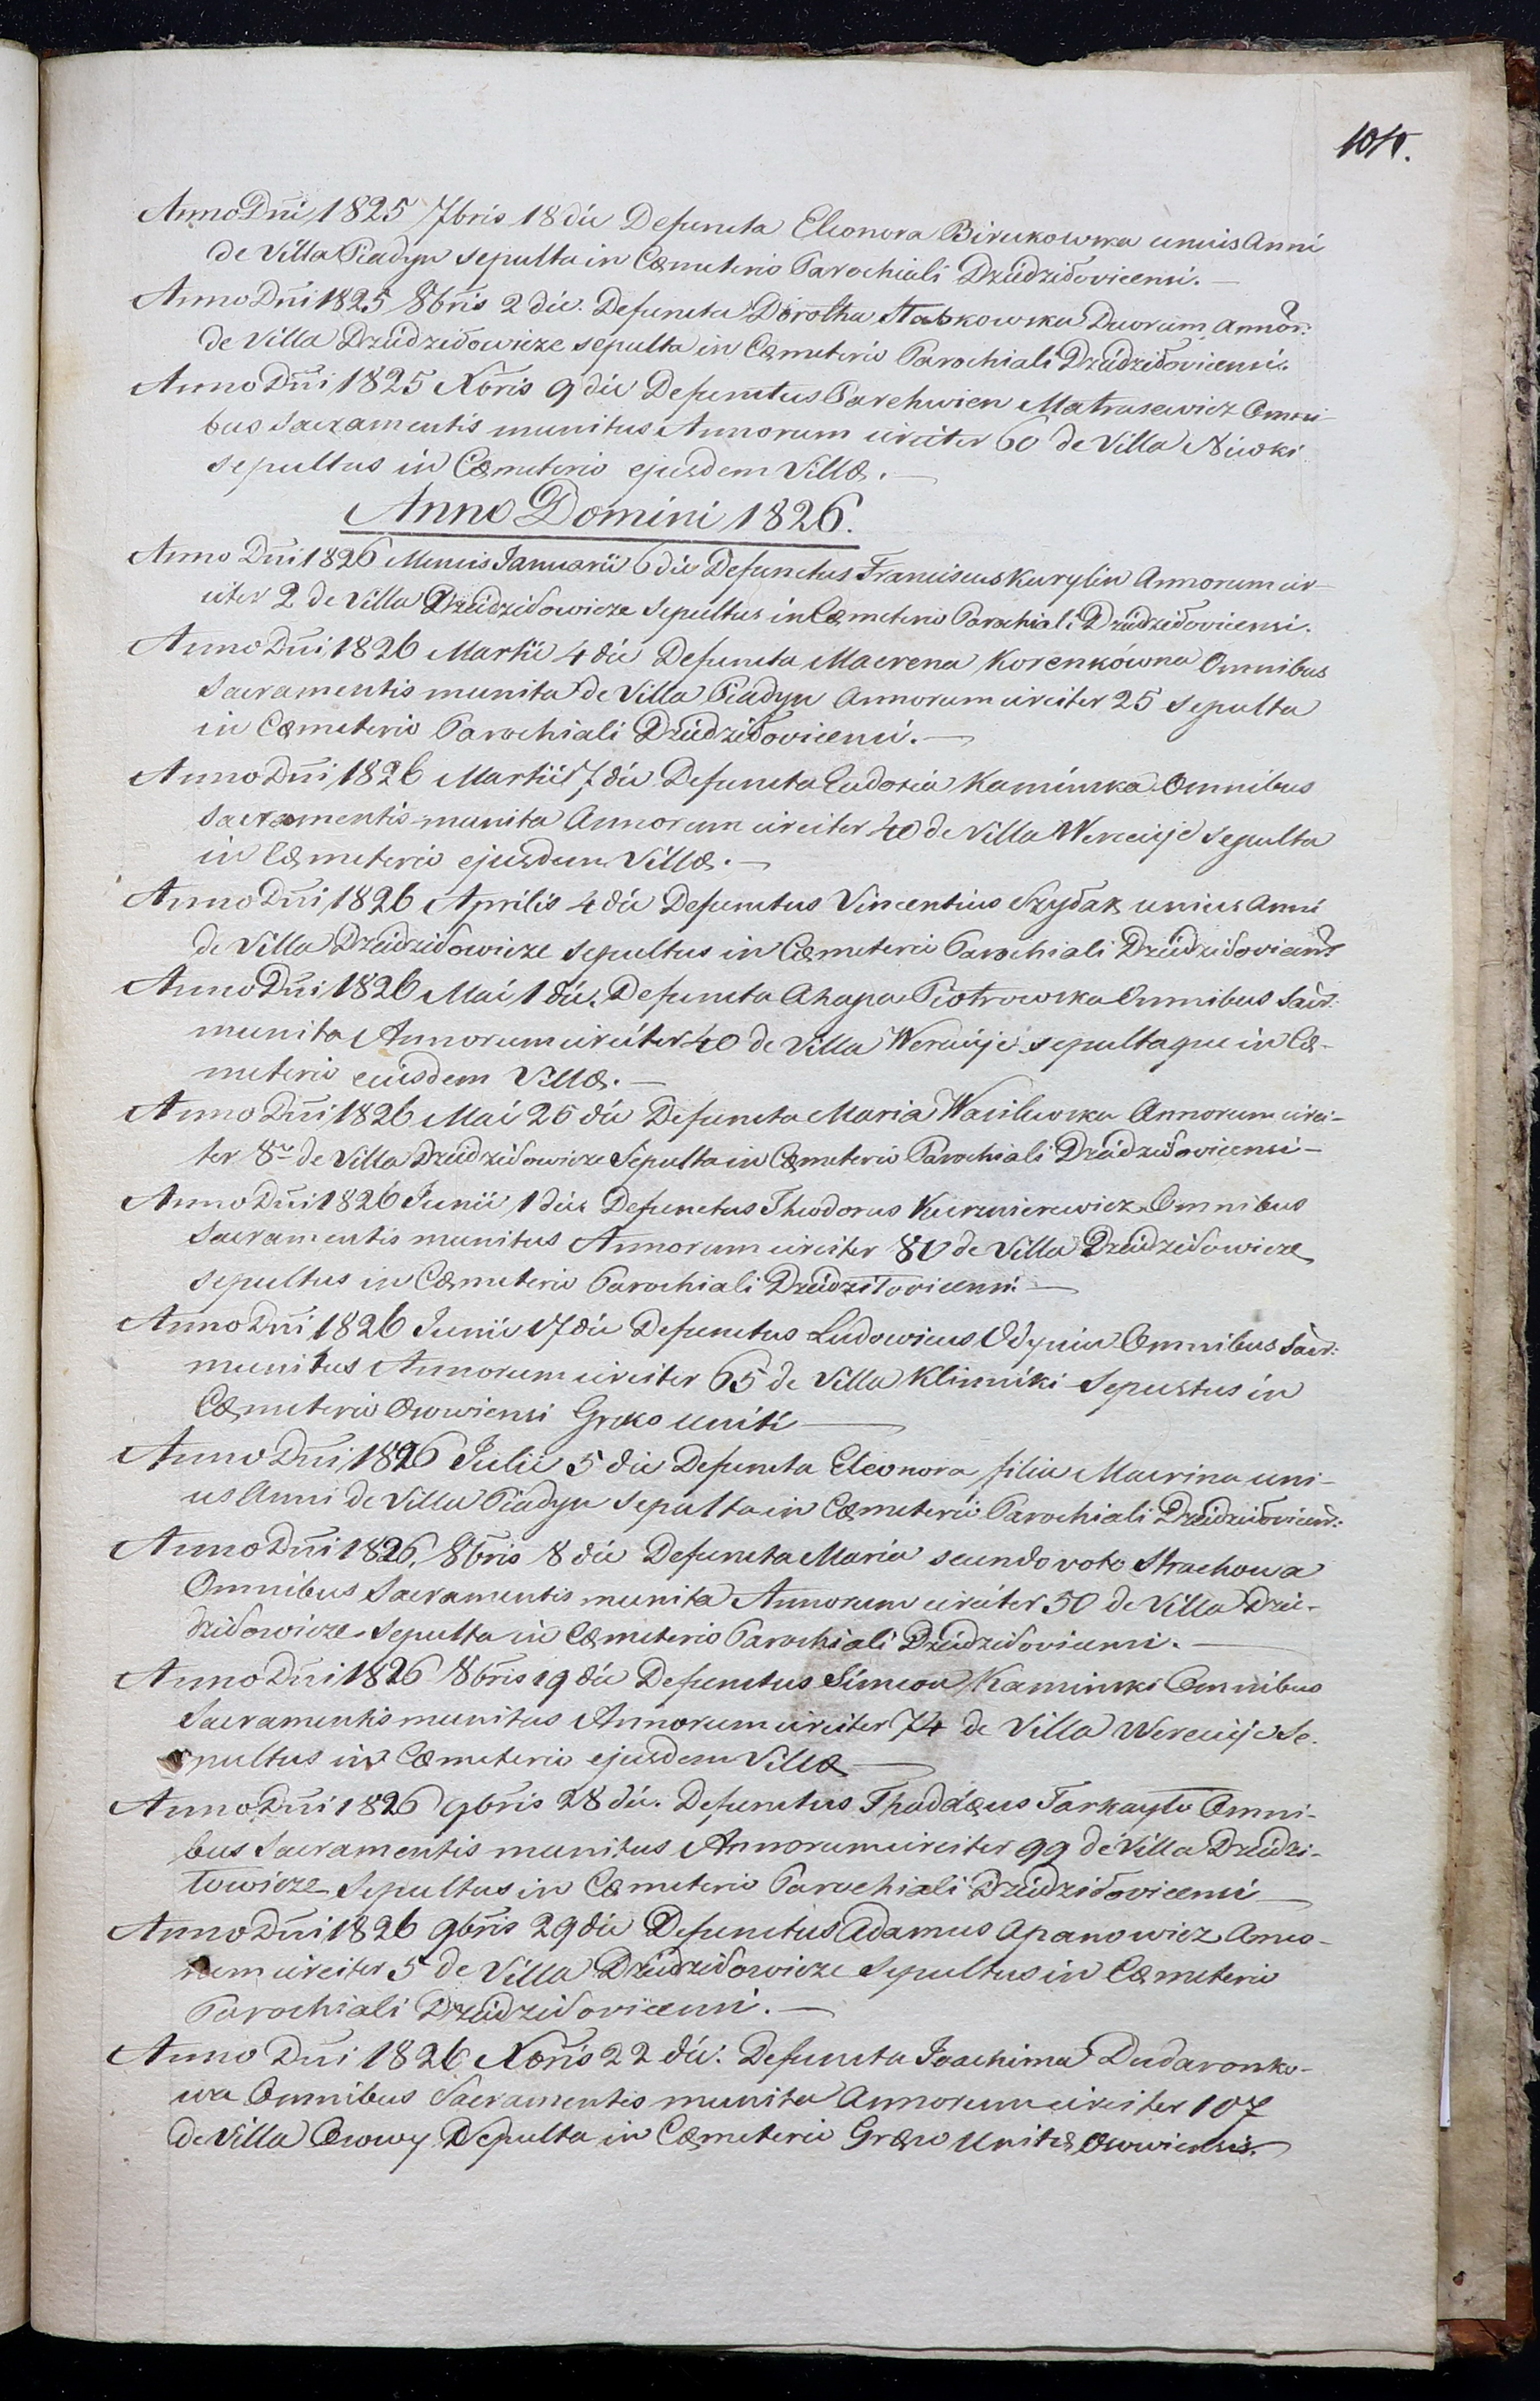 Anno Dni 1825 7bris 18 die Defuncta Eleonora Birukowska unius Anni
de Villa Piadyn sepulta in Cœmeterio Parochiali Dziedzidovicensi.
Anno Dni 1825 8bris 2 die. Defuncta Dorotha Duorum annor:
de Villa Dziedzidowicze sepulta in Cœmeterio Parochiali Dziedzidovicensi.
Anno Dni 1825 Xbris 9 die Defunctus Parchwien Matrusewicz Omni-
bus Sacramentis munitus Annorum circiter 60 de Villa Niwki
sepultus in Cœmeterio ejusdem Villæ.
Anno Domini 1826.
Anno Dni 1826 Mensis Januarii 6 die Defunctus Franciscus Kurylin Annorum cir-
citer 2 de Villa Dziedzidowicze Sepultus in Cœmeterio Parochiali Dziedzidovicensi.
Anno Dni 1826 Martii 4 die Defuncta Macrena Korenkówna Omnibus
Sacramentis munita de Villa Piadyn Annorum circiter 25 sepulta
in Cœmeterio Parochiali Dziedzidovicensi.
Anno Dni 1826 Martii 7 die Defuncta Eudoxia Kaminska Omnibus
Sacramentis munita Annorum circiter 40 de Villa Wereiije sepulta
in Cœmeterio ejusdem Villæ.
Anno Dni 1826 Aprilis 4 die Defunctus Vincentius Szydak unius Anni
de Villa Dziedzidowicze sepultus in Cœmeterio Parochiali Dziedzidovicens
Anno Dni 1826 Mai 1 die. Defuncta Ahapa Piotrowska Omnibus Sacr:
munita Annorum circiter 40 de Villa Wereiije sepultaque in Cœ-
meterio eiusdem Villæ.
Anno Dni 1826 Mai 26 die Defuncta Maria Wasilewska Annorum circi-
ter 8 de Villa Dziedzidowicze Sepulta in Cœmeterio Parochiali Dziedzidovicensi
Anno Dni 1826 Junii 1 die Defunctus Theodorus Kuzmierewicz Omnibus
Sacramentis munitus Annorum circiter 80 de Villa Dziedzidowicze
sepultus in Cœmeterio Parochiali Dziedzitovicensi
Anno Dni 1826 Junii 17 die Defunctus Ludowicus Odyniu Omnibus Sacr:
munitus Annorum circiter 65 de Villa Klimniki Sepustus in
Cœmeterio Osowiensi Greko uniti
Anno Dni 1826 Julii 5 die Defuncta Eleonora filia Macrina uni-
us Anni de Villa Piadyn Sepulta in Cœmeterio Parochiali Dziedzidovicens:
Anno Dni 1826, 8bris 8 die Defuncta Maria secundo voto Strachowa
Omnibus Sacramentis munita Annorum circiter 50 de Villa Dzie-
dzidowicze Sepulta in Cœmeterio Parochiali Dziedzidovicensi.
Anno Dni 1826 8bris 19 die Defunctus Simeon Kaminski Omnibus
Sacramentis munitus Annorum circiter 74 de Villa Wereiije Se-
pultus in Cœmeterio ejusdem Villæ
Anno Dni 1826 9bris 28 die. Defunctus Thaddæus Tarkayło Omni-
bus Sacramentis munitus Annorum circiter 99 de Villa Dziedzi-
towicze Sepultus in Cœmeterio Parochiali Dziedzidovicensi
Anno Dni 1826 9bris 29 die Defunctus Adamus Apanowicz Anno-
rum circiter 5 de Villa Dziedzidowicze Sepultus in Cœmeterio
Parochiali Dziedzidovicensi.
Anno Dni 1826 Xbris 22 die. Defuncta Joachima Dudaronko-
wa Omnibus Sacramentis munita Annorum circiter 107
de Villa Osowy Sepulta in Cœmeterio Græco Unitæ Osowiensis.